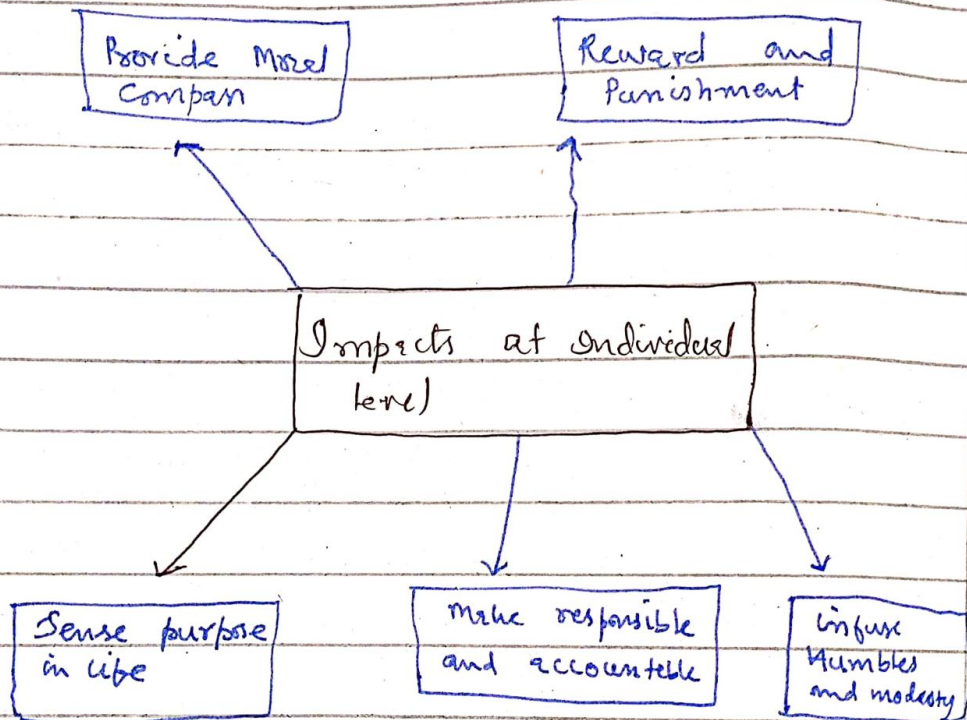 Provide Moral
Compan
Reward and
Punishment
Impacts at Individual
level
Sense purpose
in life
Make responsible
and accountable
infuse
Humbles
and modesty